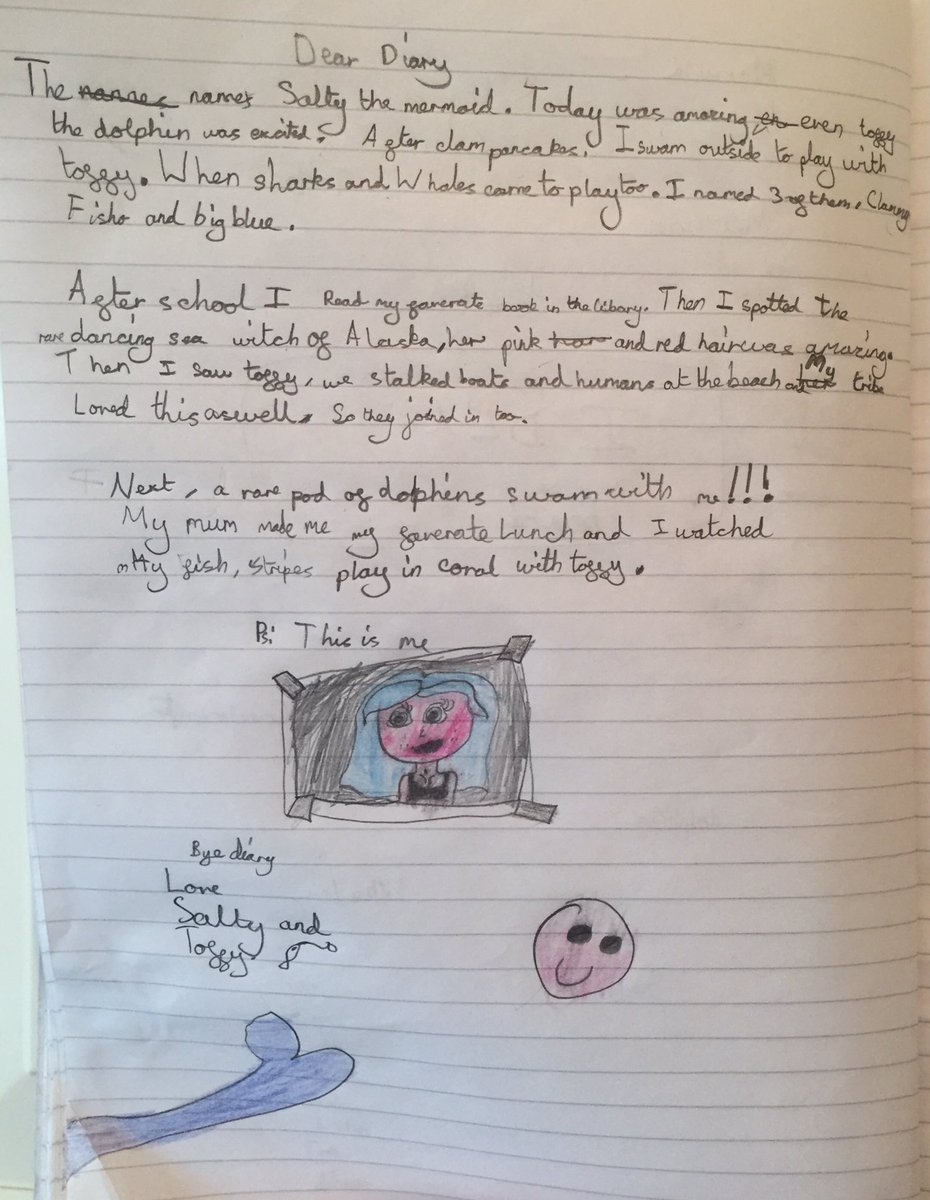 Dear Diary
The names Salty the mermaid. Today was amazing even toggy
the dolphin was excited. After clam pancakes, I swam outside to play with
toggy. When sharks and Whales came to play too. I named 3 of them, Clammy
Fisho and big blue.
After school I Read my faverate book in the libary. Then I spotted the
rare dancing sea witch of Alaska, her pink and red hair was amazing.
Then I saw toggy, we stalked boats and humans at the beach My tribe
Loved this aswell, So they joined in too.
Next, a rare pod of dolphins swam with me!!!
My mum made me my faverate Lunch and I watched
my fish, stripes play in coral with toggy.
Ps: This is me
Bye diary
Love
Salty and
Toggy